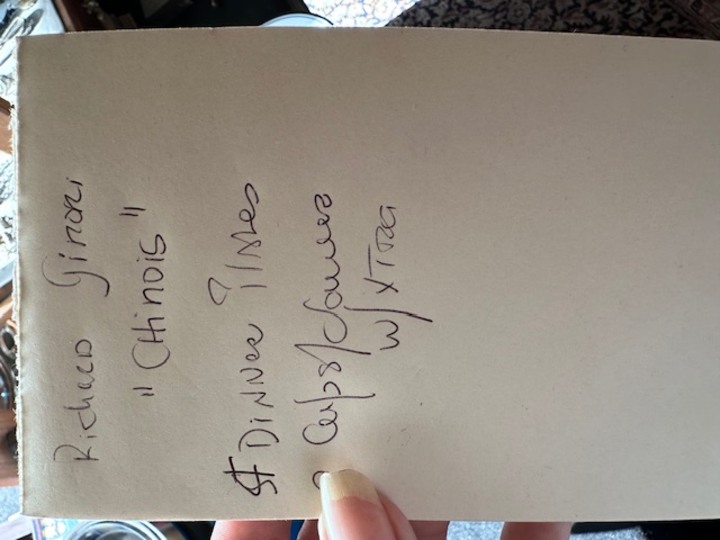 Richard Ginori
"Chinois"
Dinner Plates
Cups/Saucers
w/ XTra